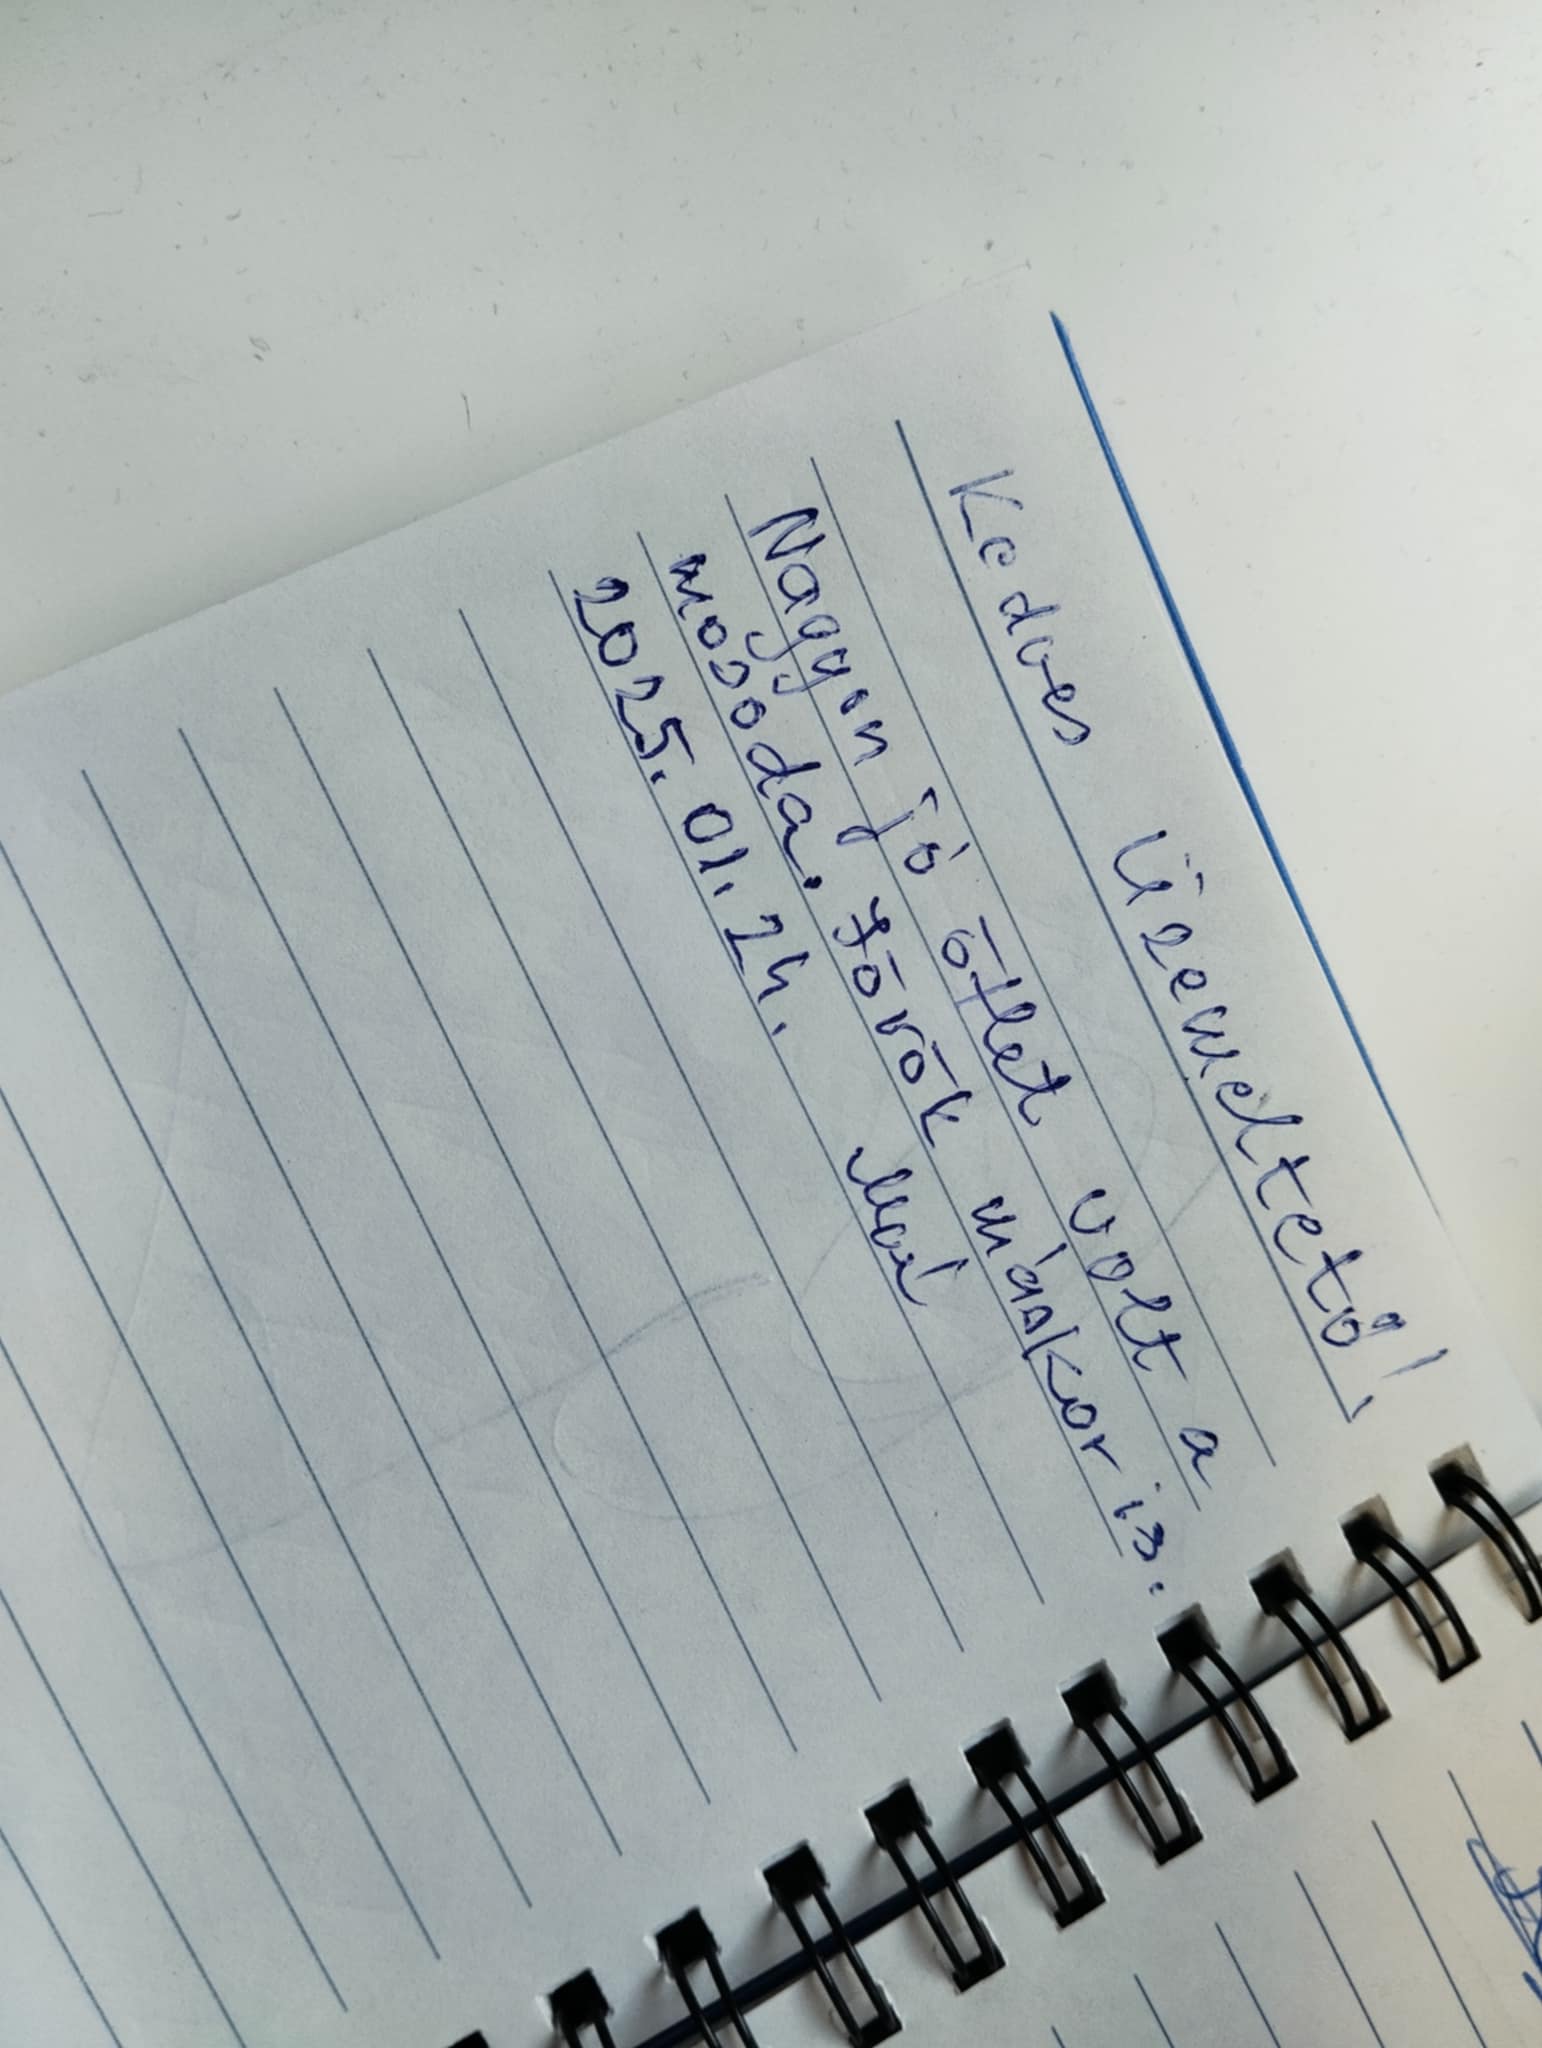 Kedves Üzemeltető!
Nagyon jó ötlet volt a
mosoda. Jövök máskor is.
2025. 01. 24.